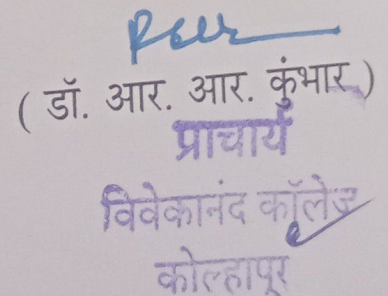 ( डॉ. आर. आर. कुंभार )
प्राचार्य
विवेकानंद कॉलेज
कोल्हापूर